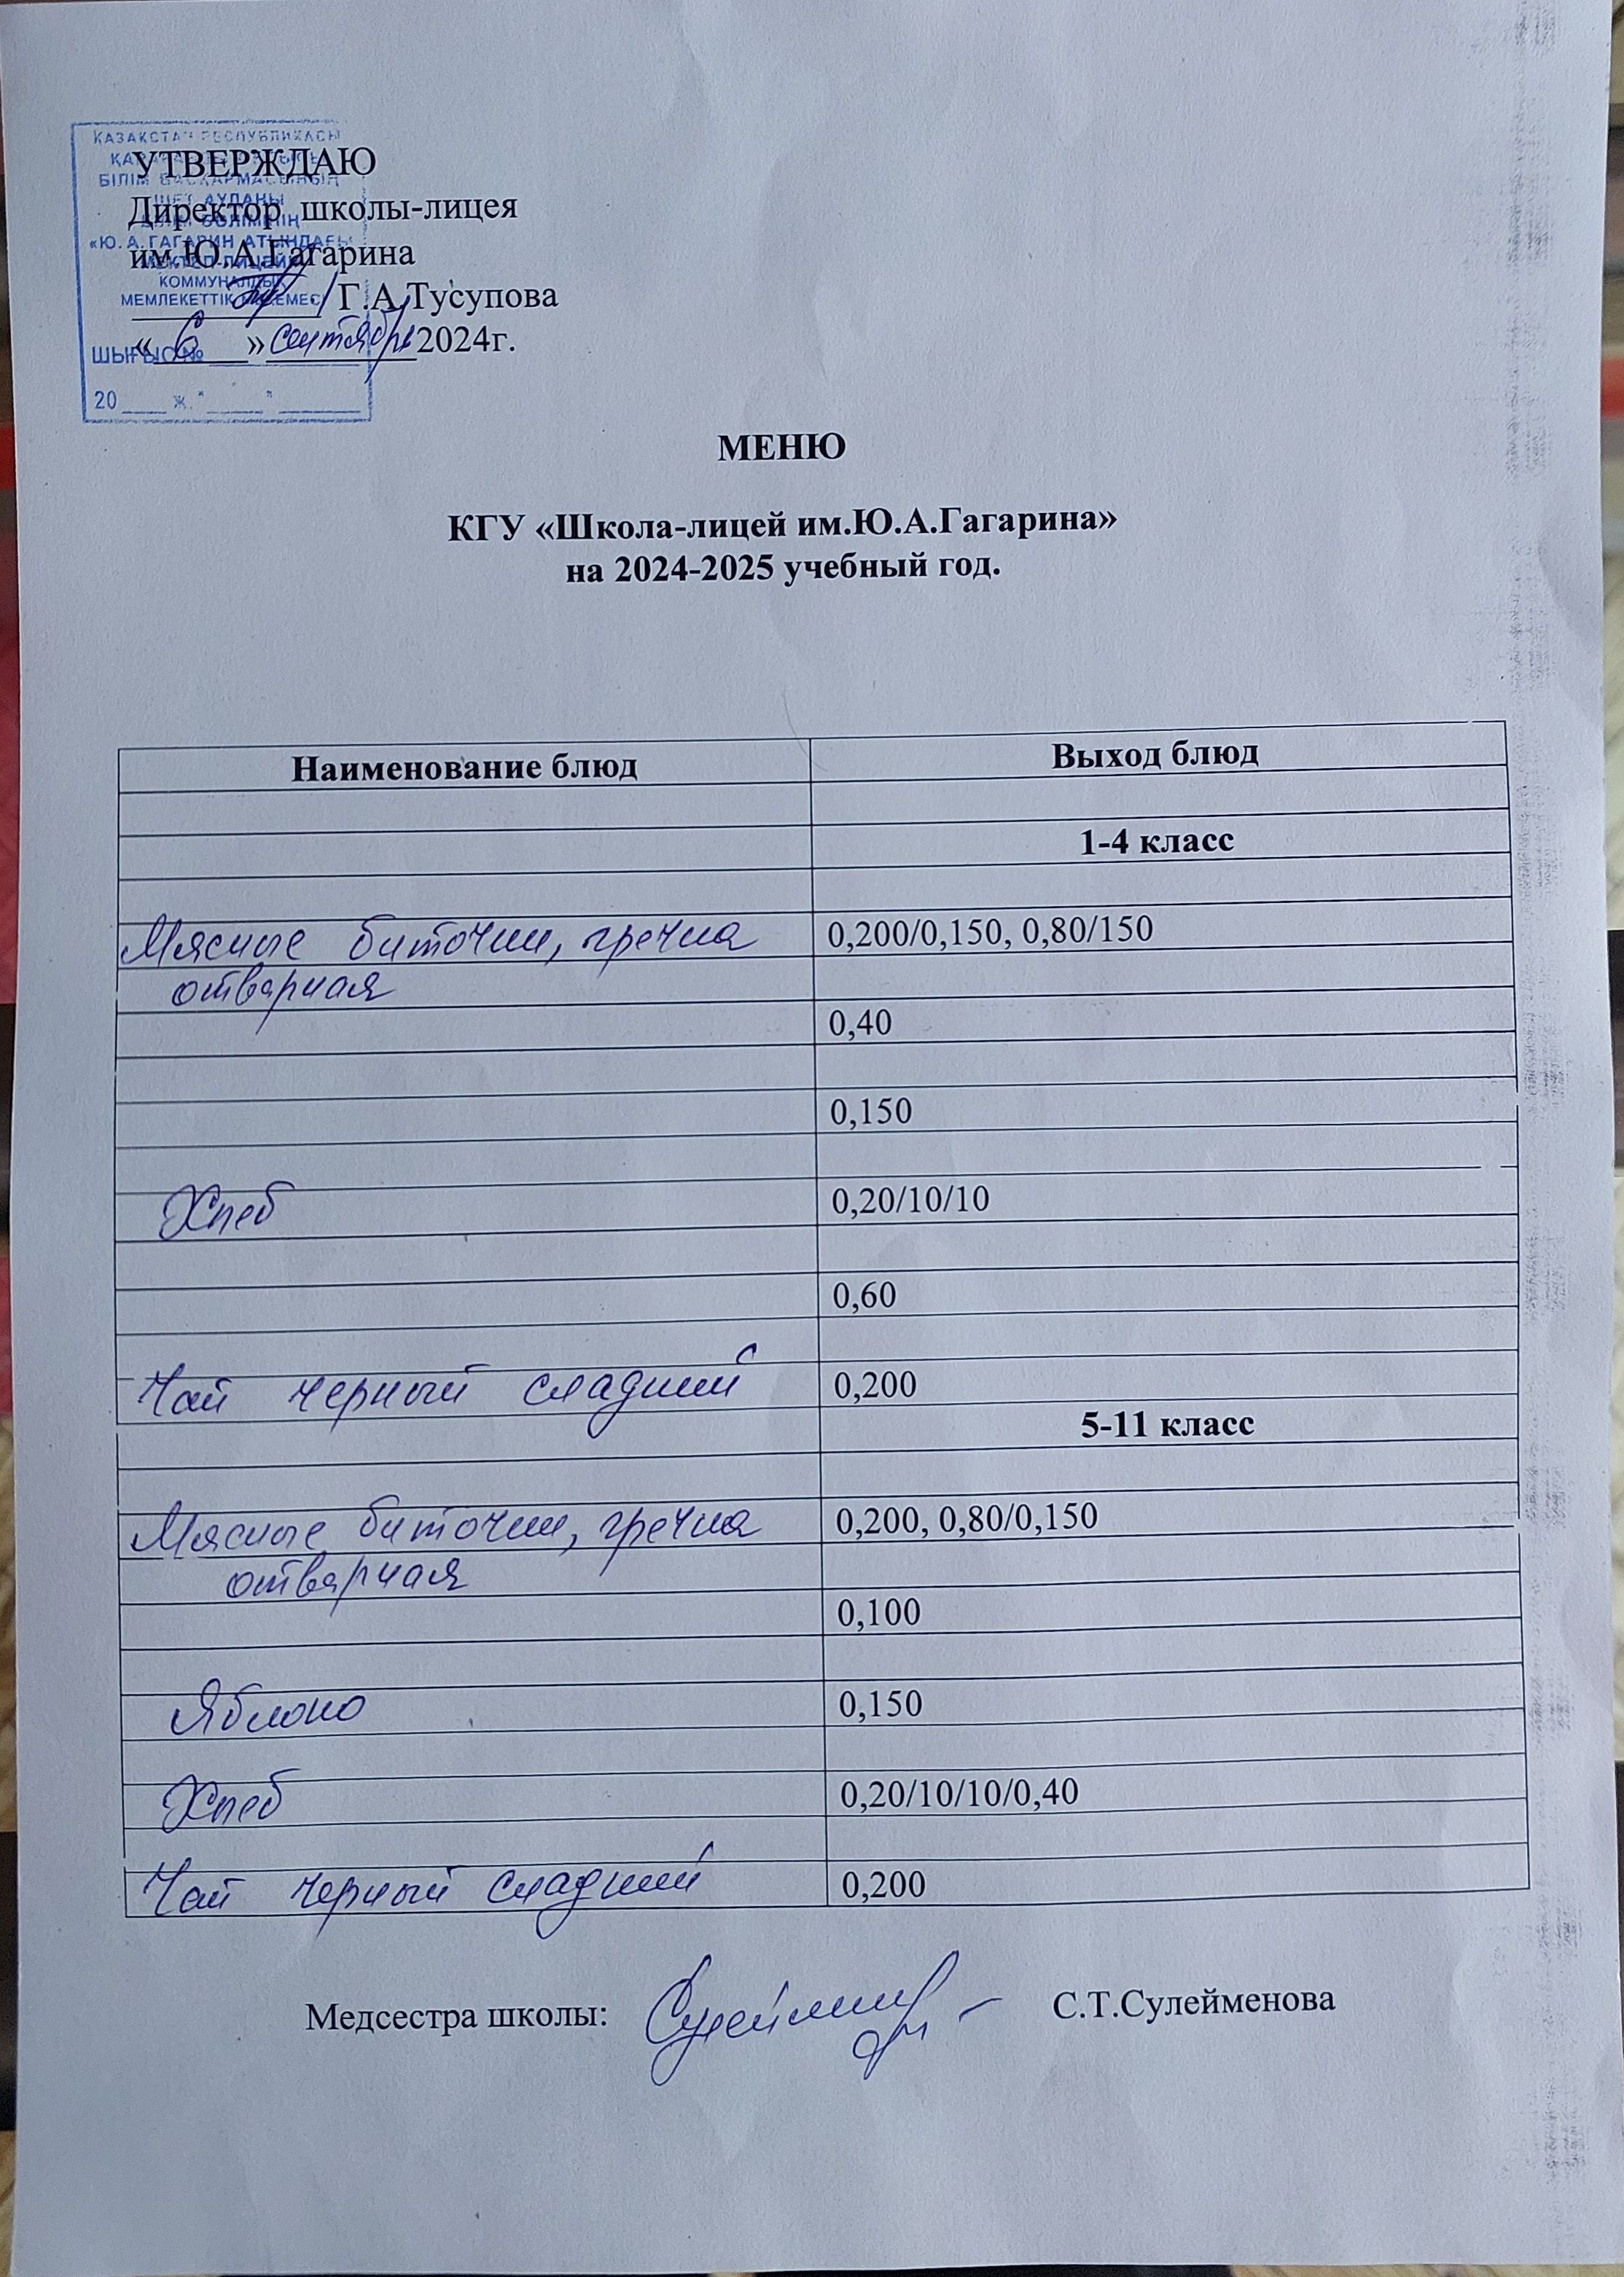 ҚАЗАҚСТАН РЕСПУБЛИКАСЫ
БІЛІМ БАСҚАРМАСЫНЫҢ
ШЕТ АУДАНЫ
БІЛІМ БӨЛІМІНІҢ
«Ю.А.ГАГАРИН АТЫНДАҒЫ
МЕКТЕП-ЛИЦЕЙІ»
КОММУНАЛДЫҚ
МЕМЛЕКЕТТІК МЕКЕМЕСІ
ШЫҒЫС №
20 ____ ж. "_____" ________
УТВЕРЖДАЮ
Директор школы-лицея
им.Ю.А.Гагарина
/ Г.А.Тусупова
« 6 » сентября 2024г.
МЕНЮ
КГУ «Школа-лицей им.Ю.А.Гагарина»
на 2024-2025 учебный год.
Наименование блюд Выход блюд
1-4 класс
Мясные биточки, гречка 0,200/0,150, 0,80/150
отварная
0,40
0,150
Хлеб 0,20/10/10
0,60
Чай черный сладкий 0,200
5-11 класс
Мясные биточки, гречка 0,200, 0,80/0,150
отварная
0,100
Яблоко 0,150
Хлеб 0,20/10/10/0,40
Чай черный сладкий 0,200
Медсестра школы: С.Т.Сулейменова